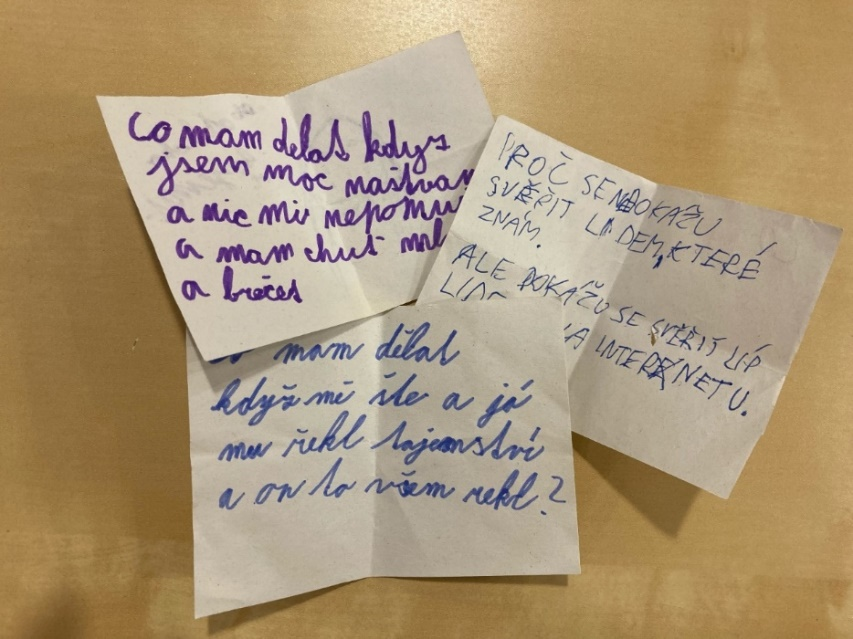 Co mam delat kdyz
jsem moc naštvan
a nic mi nepomu
a mam chut
a brečet
PROČ SE NEDOKÁŽU
SVĚŘIT LIDEM, KTERÉ
ZNÁM.
ALE DOKÁŽU SE SVĚŘIT LÍP
INTERNETU.
mam dělat
když mě šte a já
mu řekl tajemství
a on to všem rekl?